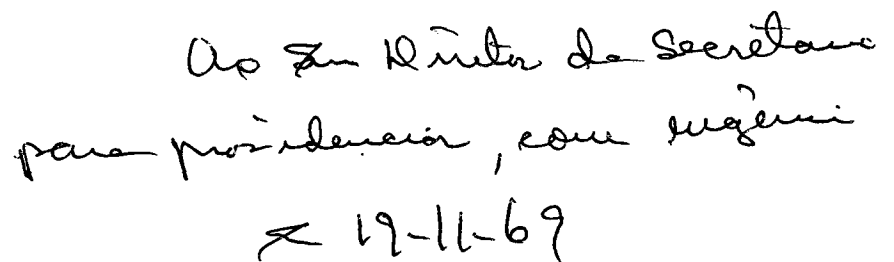 Ao Snr Diretor da Secretaria
para providenciar, com urgência
19-11-69